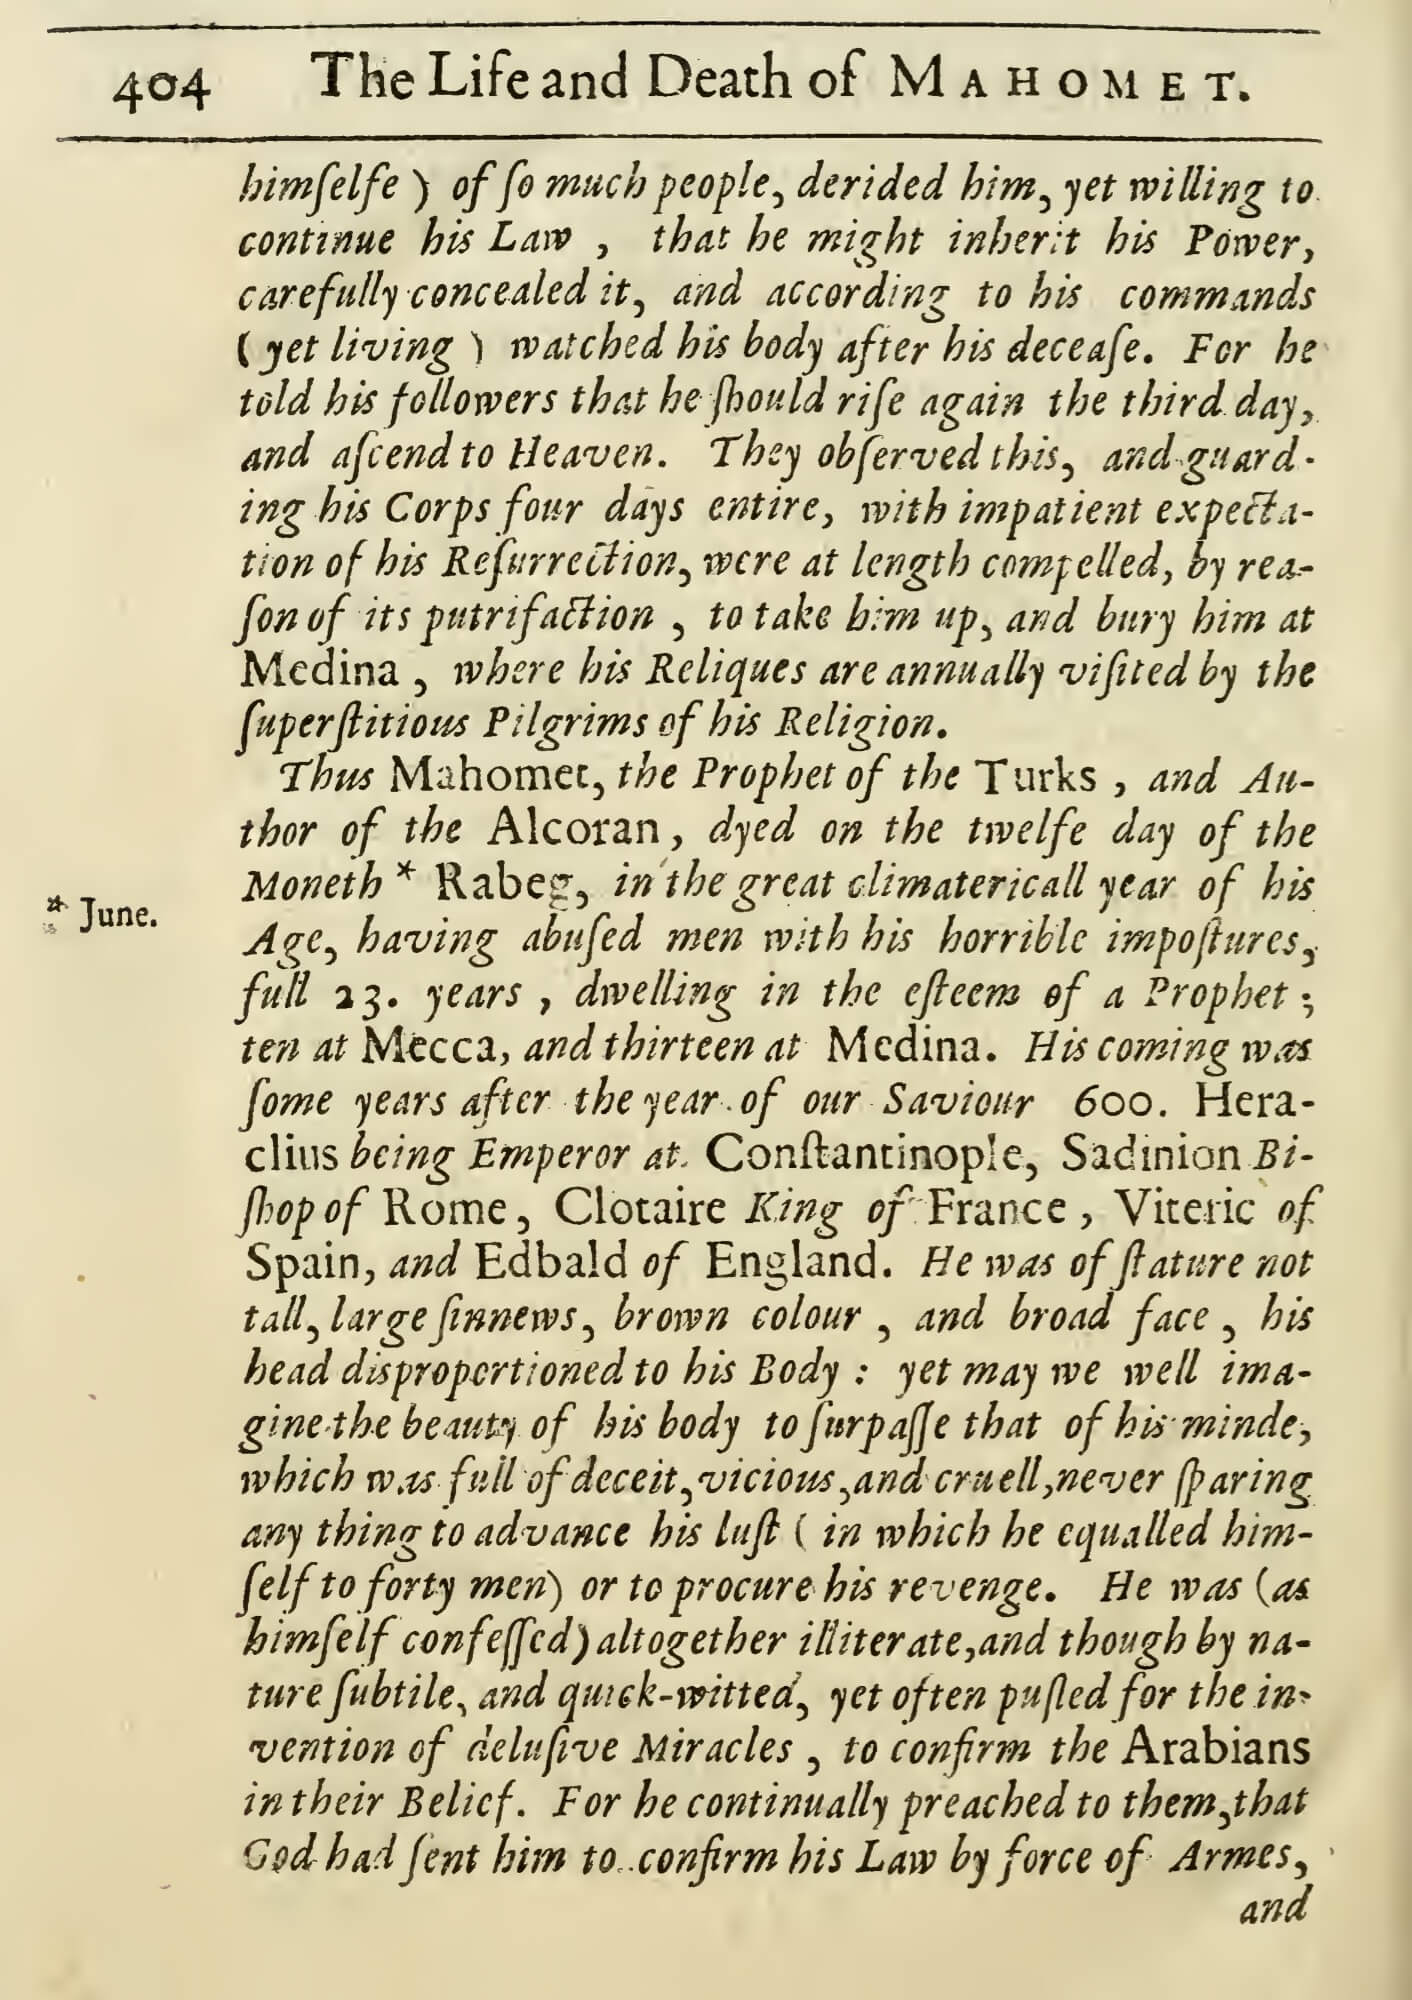 404 The Life and Death of MAHOMET.
himſelfe) of ſo much people, derided him, yet willing to
continue his Law, that he might inherit his Power,
carefully concealed it, and according to his commands
(yet living) watched his body after his deceaſe. For he
told his followers that he ſhould riſe again the third day,
and aſcend to Heaven. They obſerved this, and guard-
ing his Corps four days entire, with impatient expecta-
tion of his Reſurrection, were at length compelled, by rea-
ſon of its putrifaction, to take him up, and bury him at
Medina, where his Reliques are annually viſited by the
ſuperſtitious Pilgrims of his Religion.
Thus Mahomet, the Prophet of the Turks, and Au-
thor of the Alcoran, dyed on the twelfe day of the
Moneth * Rabeg, in the great climatericall year of his
* June.
Age, having abuſed men with his horrible impoſtures,
full 23. years, dwelling in the eſteem of a Prophet;
ten at Mecca, and thirteen at Medina. His coming was
ſome years after the year of our Saviour 600. Hera-
clius being Emperor at Conſtantinople, Sadinion Bi-
ſhop of Rome, Clotaire King of France, Viteric of
Spain, and Edbald of England. He was of ſtature not
tall, large ſinnews, brown colour, and broad face, his
head disproportioned to his Body: yet may we well ima-
gine the beauty of his body to ſurpaſſe that of his minde,
which was full of deceit, vicious, and cruell, never ſparing
any thing to advance his luſt (in which he equalled him-
ſelf to forty men) or to procure his revenge. He was (as
himſelf confeſſed) altogether illiterate, and though by na-
ture ſubtile, and quick-witted, yet often puſled for the in-
vention of deluſive Miracles, to confirm the Arabians
in their Belief. For he continually preached to them, that
God had ſent him to confirm his Law by force of Armes,
and